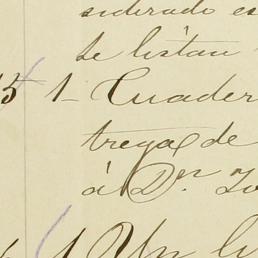 siderado es
se listan
15 1- Cuader
trega de
á Dn. Jo
1 Un li